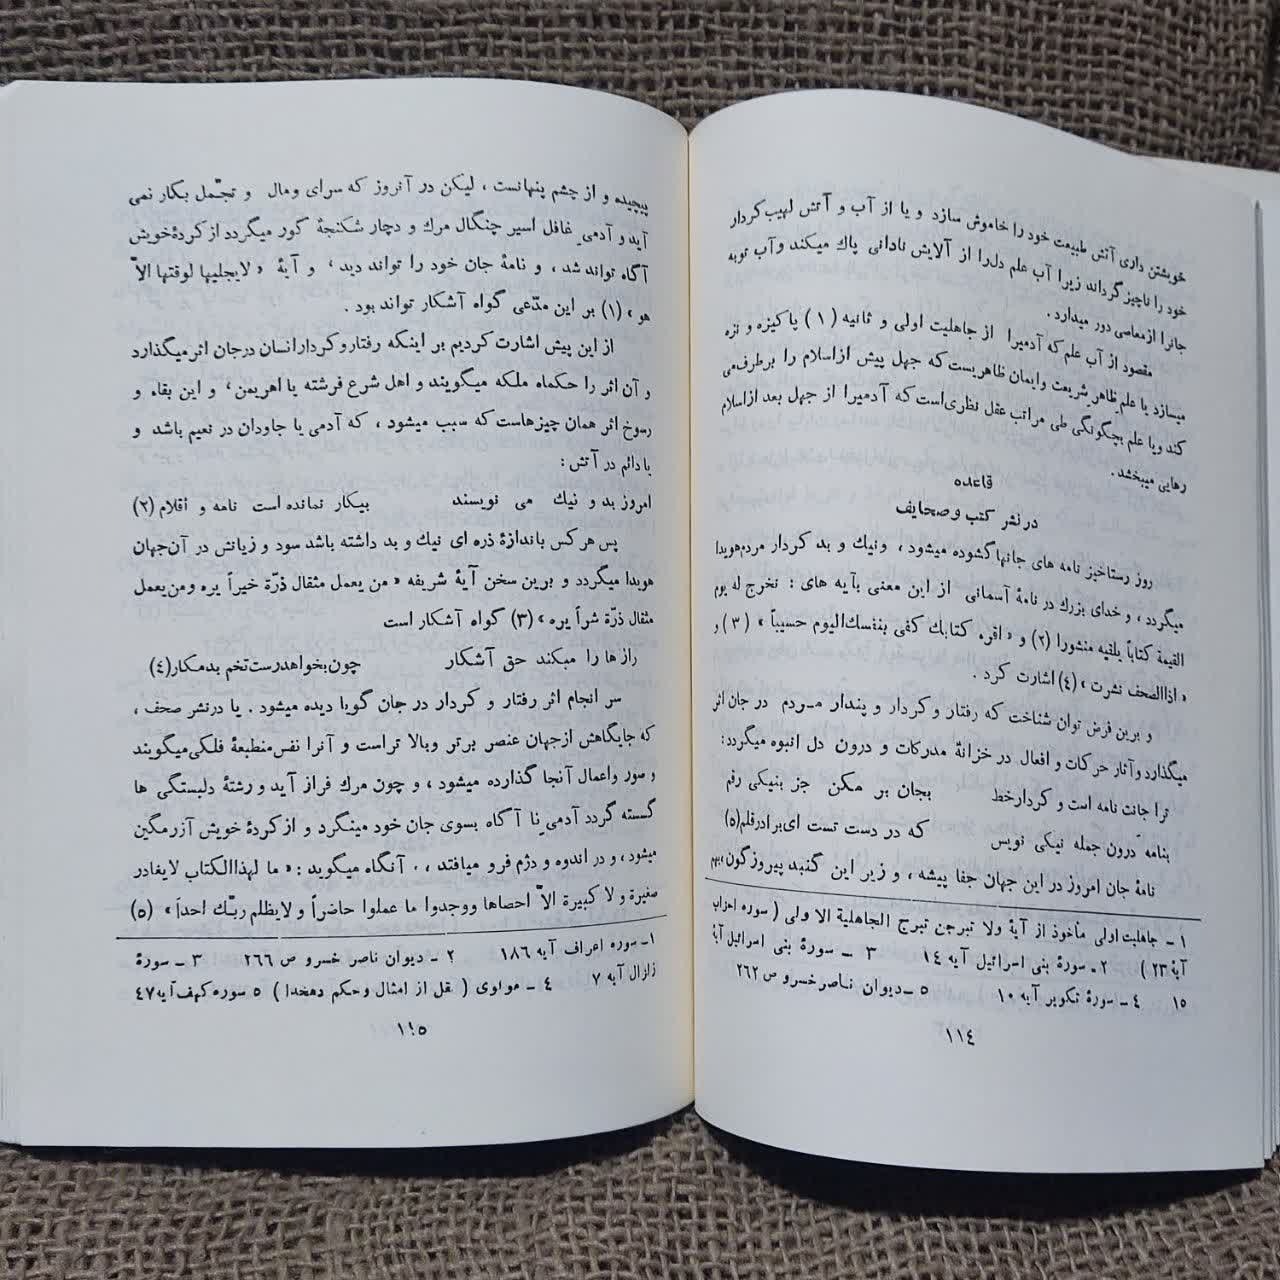 خویشتن داری آتش طبیعت خود را خاموش سازد و یا از آب و آتش لهیب‌کردار
خود را ناچیز گرداند زیرا آب علم دل‌را از آلایش نادانی پاك میکند وآب توبه
جانرا ازمعاصی دور میدارد .
مقصود از آب علم که آدمیرا از جاهلیت اولی و ثانیه (۱) پاکیزه و نزه
میسازد یا علم ظاهر شریعت وایمان ظاهریست‌که جهل پیش ازاسلام را برطرف‌می
کند ویا علم بچگونگی طی مراتب عقل نظری‌است‌که آدمیرا از جهل بعد ازاسلام
رهایی میبخشد .
قاعده
در نشر کتب و صحایف
روز رستاخیز نامه های جانها گشوده میشود ، ونیك و بد کردار مردم‌هویدا
میگردد ، و خدای بزرك در نامهٔ آسمانی از این معنی بآیه های : نخرج له یوم
القیمة کتاباً یلقیه منشورا (۲) و « اقره کتابك کفی بنفسك‌الیوم حسیباً » (۳) و
« اذاالصحف نشرت » (٤) اشارت کرد .
و برین فرض توان شناخت که رفتار و کردار و پندار مـردم در جان اثر
میگذارد وآثار حرکات و افعال در خزانهٔ مدرکات و درون دل انبوه میگردد:
ترا جانت نامه است و کردارخط بجان بر مکن جز بنیکی رقم
بنامه درون جمله نیکی نویس که در دست تست ای‌برادرقلم(۵)
نامهٔ جان امروز در این جهان جفا پیشه ، و زیر این گنبد پیروزگون،بهم
۱ ـ جاهلیت اولی مأخوذ از آیهٔ ولا تبرجن تبرج الجاهلیة الاولی ( سوره احزاب
آیهٔ ۲۳ ) ۲ ـ سورهٔ بنی اسرائیل آیه ۱٤ ۳ ـ سورهٔ بنی اسرائیل آیهٔ
۱۵ ٤ ـ سورهٔ تکویر آیه ۱۰ ۵ ـ دیوان ناصرخسرو ص ۲۶۲
۱۱٤
پیچیده و از چشم پنهانست ، لیکن در آنروز که سرای ومال و تجمّل بکار نمی
آید و آدمی غافل اسیر چنگال مرك و دچار شکنجهٔ گور میگردد از کردهٔ‌خویش
آگاه تواند شد ، و نامهٔ جان خود را تواند دید ، و آیهٔ « لایجلیها لوقتها الاّ
هو » (۱) بر این مدّعی گواه آشکار تواند بود .
از این پیش اشارت کردیم بر اینکه رفتاروکردارانسان درجان اثرمیگذارد
و آن اثر را حکماه ملکه میگویند و اهل شرع فرشته یا اهریمن ، و این بقاء و
رسوخ اثر همان چیزهاست که سبب میشود ، که آدمی یا جاودان در نعیم باشد و
یا دائم در آتش :
امروز بد و نیك می نویسند بیکار نمانده است نامه و اقلام (۲)
پس هرکس باندازهٔ ذره ای نیك و بد داشته باشد سود و زیانش در آن‌جهان
هویدا میگردد و برین سخن آیهٔ شریفه « من یعمل مثقال ذرّة خیراً یره ومن‌یعمل
مثقال ذرّة شراً یره » (۳) گواه آشکار است
رازها را میکند حق آشکار چون‌بخواهدرست‌تخم بدمکار(٤)
سر انجام اثر رفتار و کردار در جان گویا دیده میشود . یا درنشر صحف ،
که جایگاهش ازجهان عنصر برتر وبالا تراست و آنرا نفس‌منطبعهٔ فلکی‌میگویند
و صور واعمال آنجا گذارده میشود ، و چون مرك فراز آید و رشتهٔ دلبستگی ها
گسسته گردد آدمی نا آگاه بسوی جان خود مینگرد و ازکردهٔ خویش آزرمگین
میشود ، و در اندوه و دژم فرو میافتد ، . آنگاه میگوید : « ما لهذاالکتاب لایغادر
صغیرة و لا کبیرة الاّ احصاها ووجدوا ما عملوا حاضراً و لایظلم ربّك احداً » (۵)
۱ـ سوره اعراف آیه ۱۸۶ ۲ ـ دیوان ناصر خسرو ص ۲۶۶ ۳ ـ سورهٔ
زلزال آیه ۷ ٤ ـ مولوی ( نقل از امثال وحکم دهخدا ) ۵ سوره کهف آیه ٤۷
۱۱۵